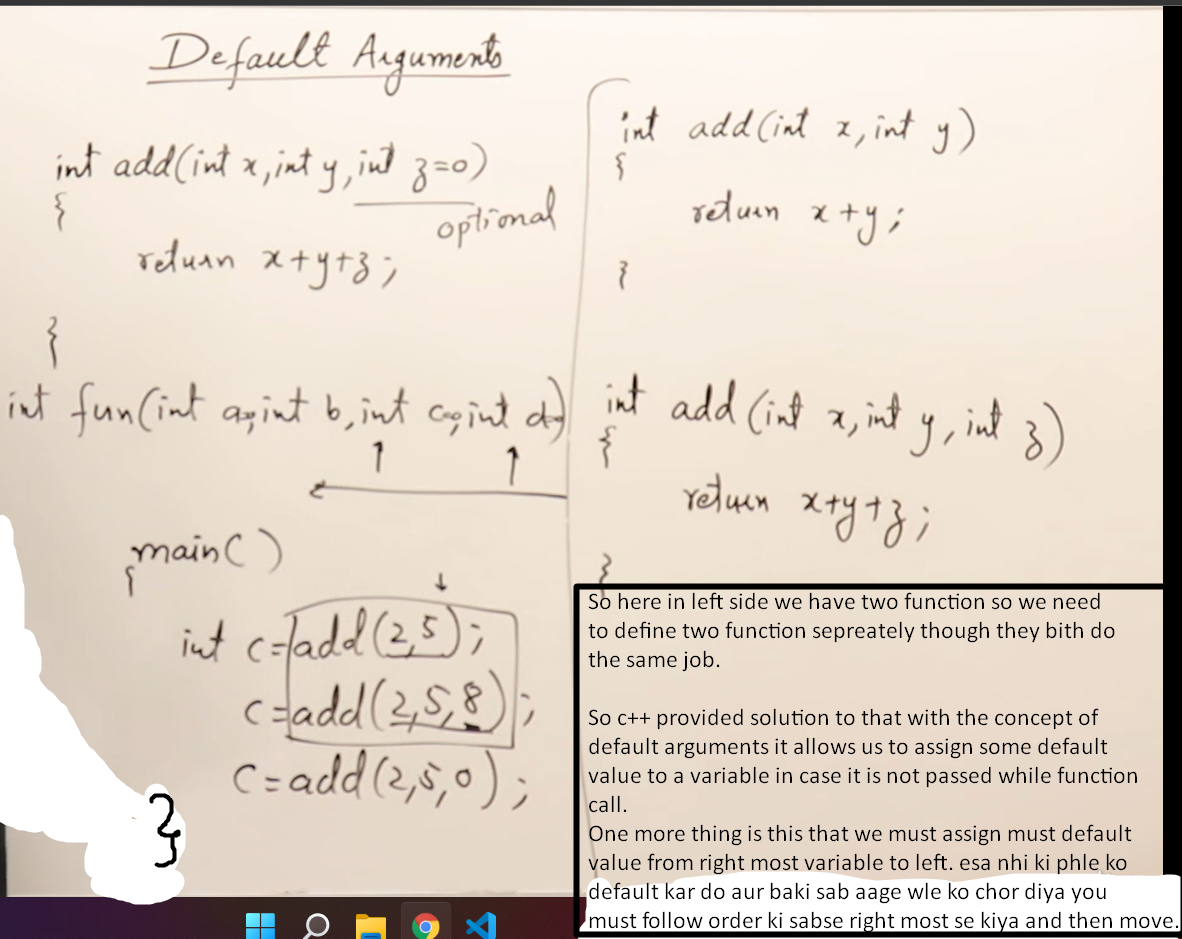 Default Arguments
int add(int x, int y, int z=0)
{
optional
return x+y+z;
}
int fun(int a=, int b, int c=0, int d=)
main()
{
int c=add(2,5);
c=add(2,5,8);
c=add(2,5,0);
}
int add(int x, int y)
{
return x+y;
}
int add(int x, int y, int z)
{
return x+y+z;
}
So here in left side we have two function so we need
to define two function sepreately though they bith do
the same job.
So c++ provided solution to that with the concept of
default arguments it allows us to assign some default
value to a variable in case it is not passed while function
call.
One more thing is this that we must assign must default
value from right most variable to left. esa nhi ki phle ko
default kar do aur baki sab aage wle ko chor diya you
must follow order ki sabse right most se kiya and then move.